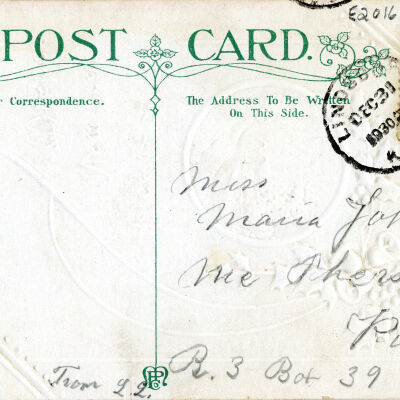 E2016
POST CARD.
r Correspondence.
The Address To Be Written
On This Side.
LINDS
DEC 30
Miss
Maria Joh
Mc Phers
R. 3 Box 39
From L.L.